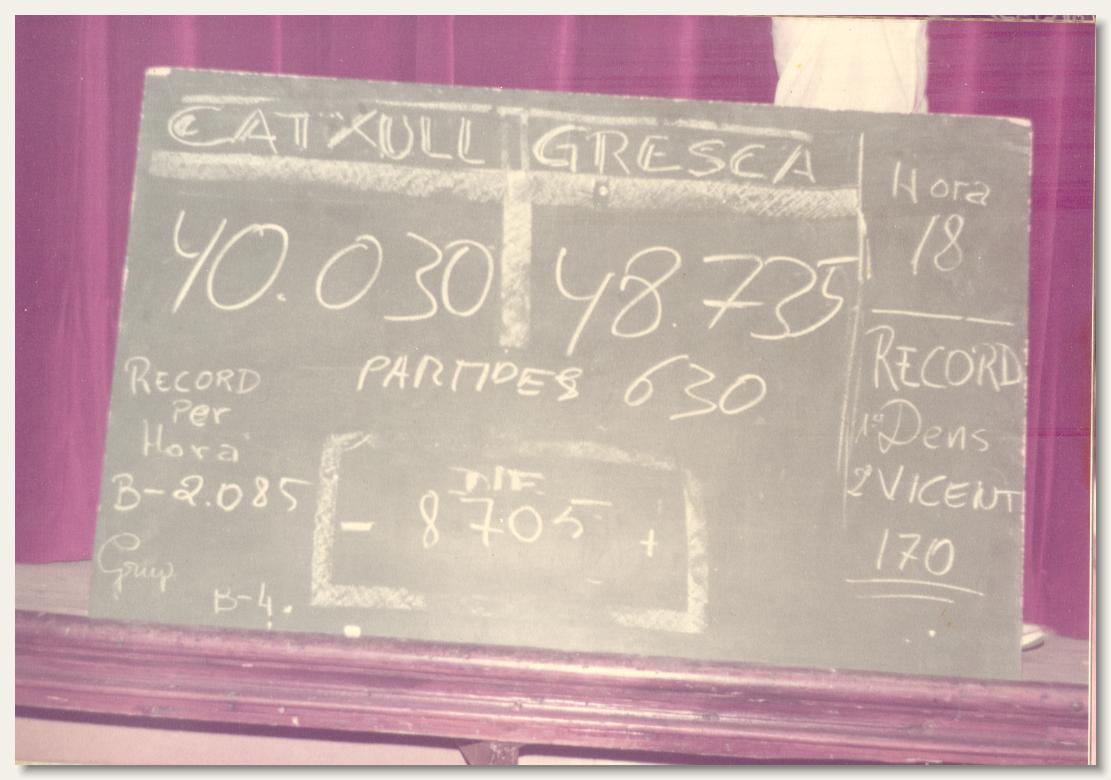 CATXULL GRESCA
40.030 48.735
PARTIDES 630
RECORD
Per
Hora
B-2.085
Grup
B-4.
DIF.
- 8705 +
Hora
18
RECORD
1º Dens
2 VICENT
170